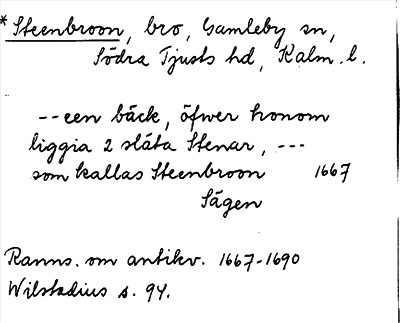 * Steenbroon, bro, Gamleby sn,
Södra Tjusts hd, Kalm. l.
-- een bäck, öfwer honom
liggia 2 släta Stenar, ---
som kallas Steenbroon 1667
Sägen
Ranns. om antikv. 1667-1690
Wilstadius s. 94.